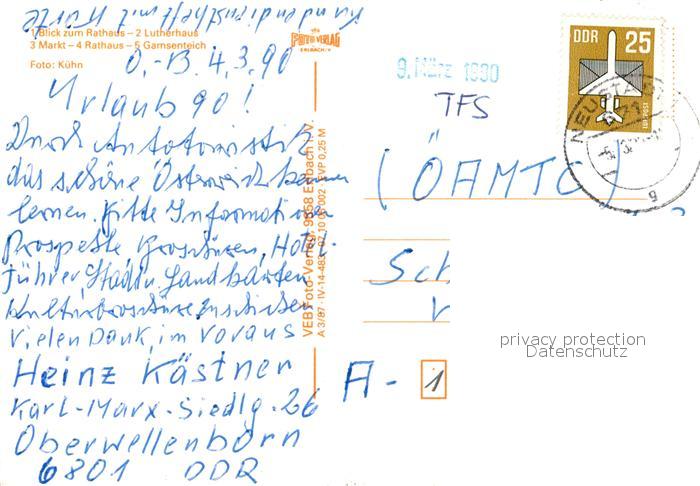 Kundendienstheft mit Karte
1 Blick zum Rathaus – 2 Lutherhaus
3 Markt – 4 Rathaus – 5 Gamsenteich
Foto: Kühn
O.-B. 4.3.90
Urlaub 90!
Durch Autotouristik
das schöne Österreich kennen
lernen. Bitte Informationen
Prospekte, Broschüren, Hotel-
führer Stadtu. Landkarten
Kulturbroschüre
Vielen Dank, im voraus
Heinz Kästner
Karl-Marx-Siedlg. 26
Oberwellenborn
6801 DDR
FOTO VERLAG
ERLBACH/V
VEB Foto-Verlag 9658 Erlbach
A 3/87 · IV-14-483 EVP 0,25 M
9. März 1990
TFS
DDR 25
LUFTPOST
NEUSTADT
(ÖAMTC)
Sch
A - 1
privacy protection
Datenschutz